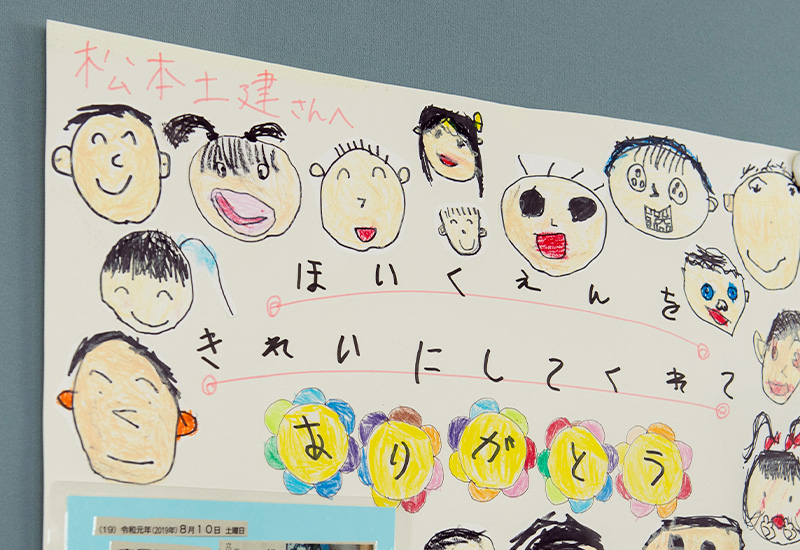 松本土建さんへ
ほいくえんを
きれいにしてくれて
ありがとう
(19) 令和元年(2019年)8月10日 土曜日